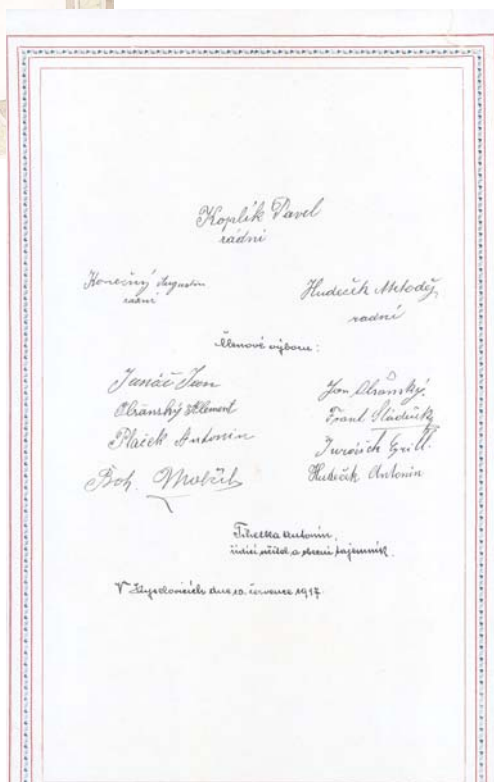 Koplík Pavel
radní
Konečný Augustin
radní
Hudeček Metoděj
radní
Členové výboru:
Janáč Jan
Olšanský Klement
Plaček Antonín
Boh.
Jan Olšanský.
Frant. Sládeček
Jurášek Cyrill.
Hudeček Antonín
Antonín,
řídící učitel a obecní tajemník.
V dne 10. července 1917.